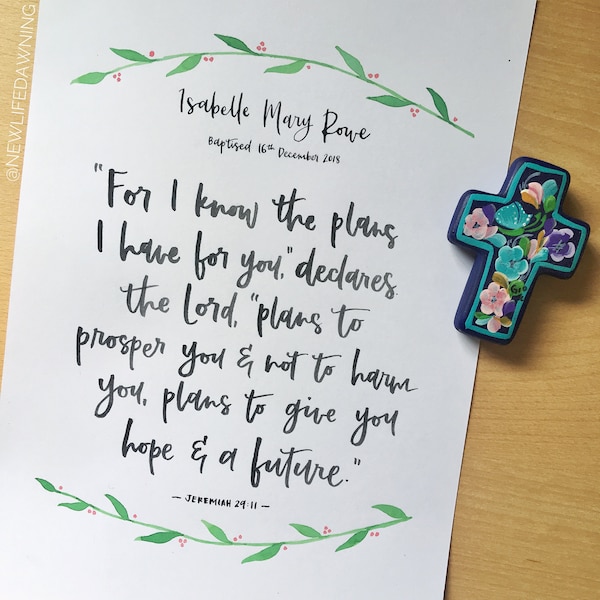 @NEWLIFEDAWNING
Isabelle Mary Rowe
Baptised 16th December 2018
"For I know the plans
I have for you," declares
the Lord, "plans to
prosper you & not to harm
you, plans to give you
hope & a future."
— JEREMIAH 29:11 —